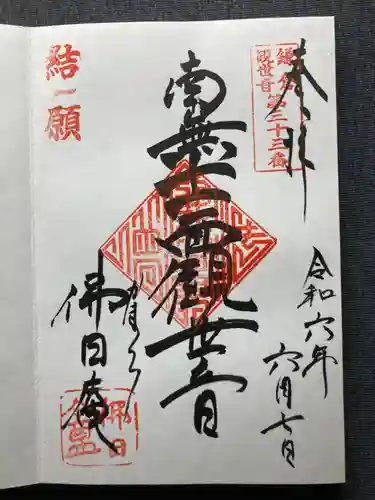 奉拝
鎌倉
観世音 第三十三番
令和六年
六月七日
南無十一面観世音
佛日庵
結願
佛日